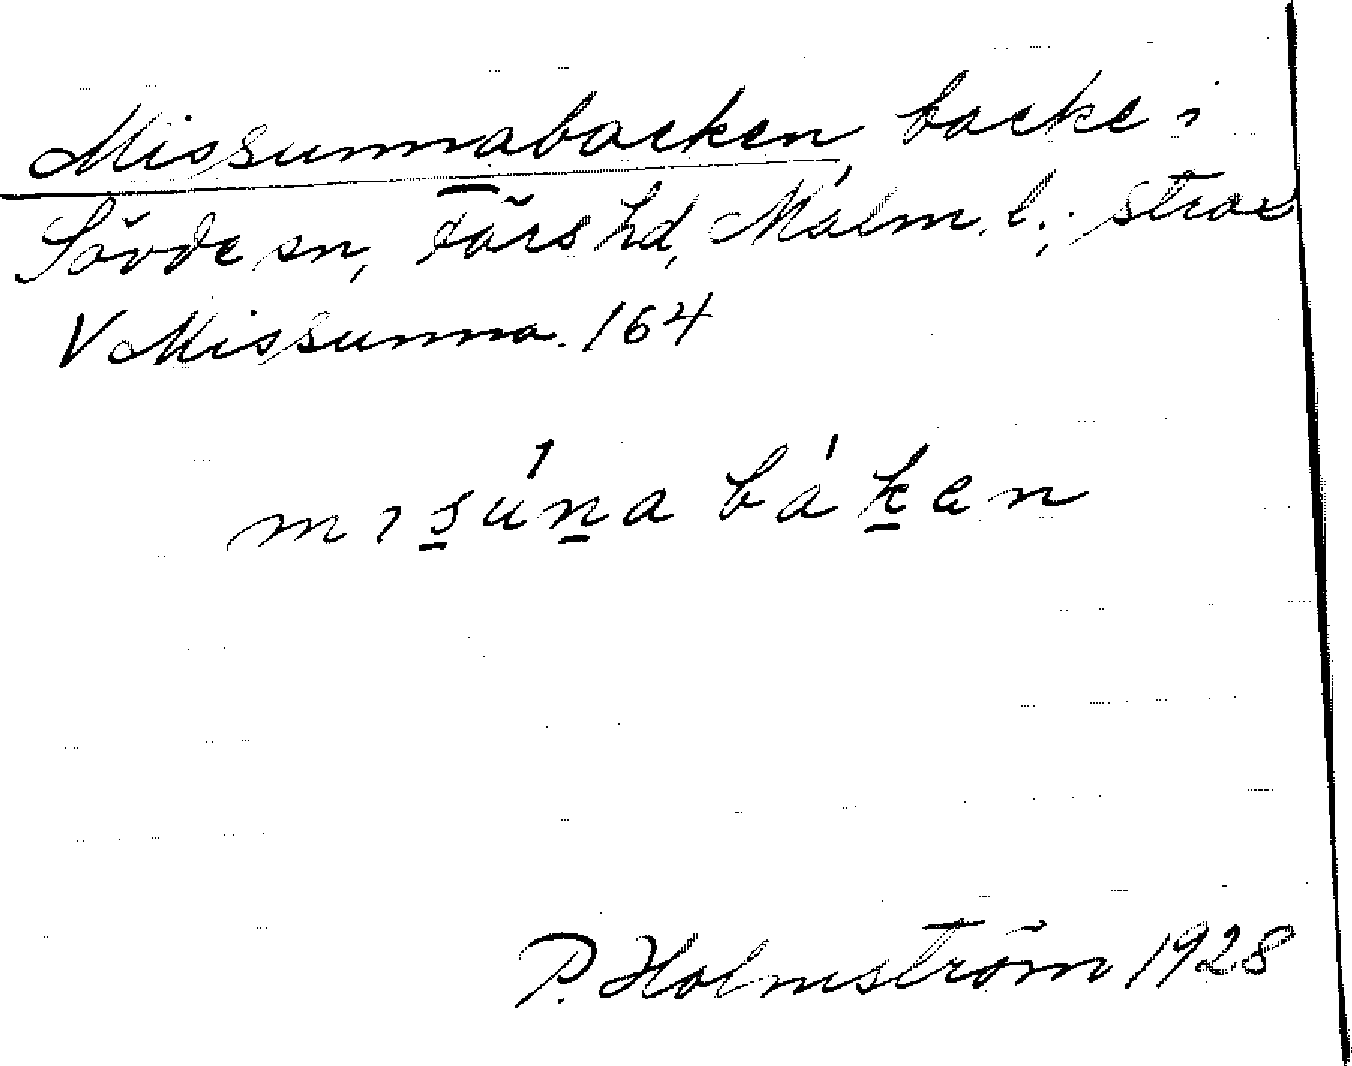 Missunnabacken backe i
Sövde sn, Färs hd, Malm. l.; strax
V Missunna. 164
mısúna báken
P. Holmström 1928